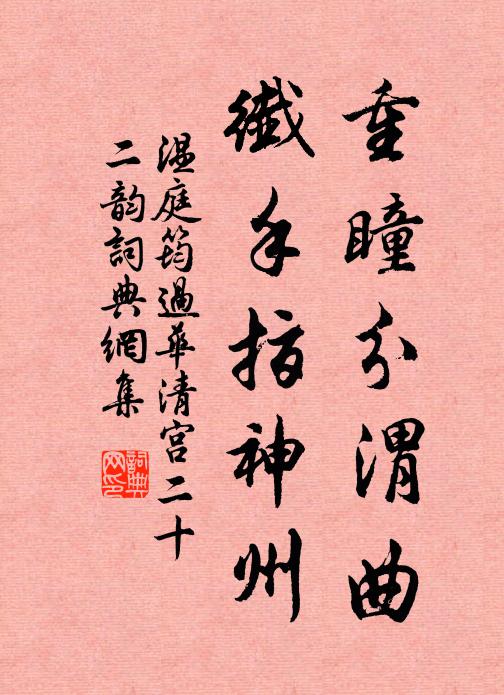 重瞳分渭曲
纖手指神州
溫庭筠過華清宮二十
二韵詞典網集
詞典網印